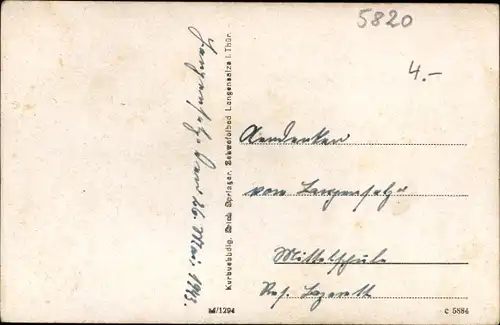 5820
4.-
Langensalza, den 26. Mai 1943.
Kurbuchhdlg. Erich Springer, Schwefelbad Langensalza i. Thür.
Aendenken
vom Langensalza
Mittelschule
Res. Lazarett
M/1294
c 5884